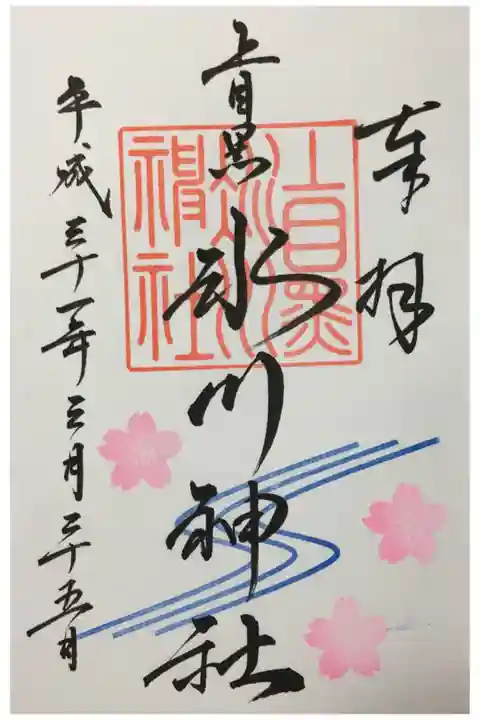 奉拝
上目黒氷川神社
上目黒氷川神社
平成三十一年三月二十五日